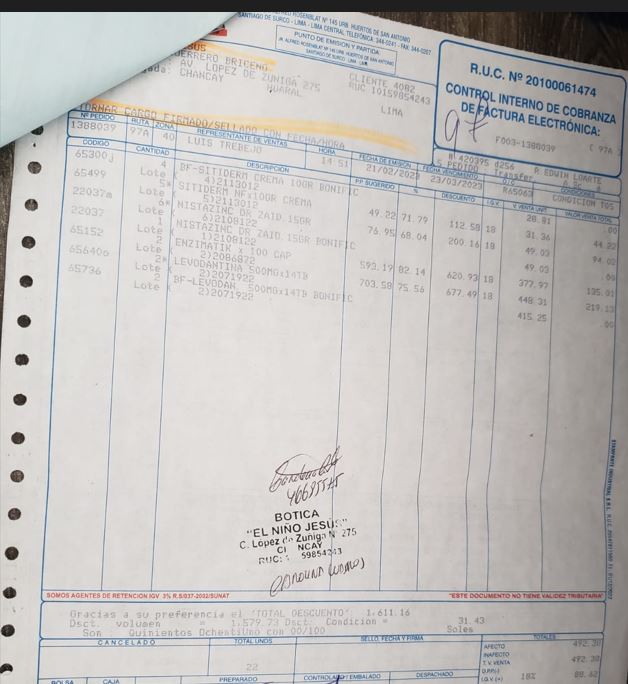 ALFREDO ROSENBLAT Nº 145 URB. HUERTOS DE SAN ANTONIO
SANTIAGO DE SURCO - LIMA - LIMA CENTRAL TELEFÓNICA: 344-0241 - FAX: 344-0207
PUNTO DE EMISIÓN Y PARTIDA:
JR. ALFREDO ROSENBLAT Nº 145 URB. HUERTOS DE SAN ANTONIO
SANTIAGO DE SURCO LIMA LIMA
R.U.C. Nº 20100061474
CONTROL INTERNO DE COBRANZA
DE FACTURA ELECTRÓNICA:
97
F003-1388039
JESUS
GUERRERO BRICENO
AV LOPEZ DE ZUNIGA 275
CHANCAY HUARAL
CLIENTE 4082
RUC 10159854243
LIMA
TORNAR CARGO FIRMADO/SELLADO CON FECHA/HORA
Nº PEDIDO RUTA ZONA REPRESENTANTE DE VENTAS HORA FECHA DE EMISIÓN FECHA VENCIMIENTO CONDICIONES
1388039 97A 40 LUIS TREBEJO 14 51 21/02/2023 23/03/2023 R65063 CONDICION TOS
420395 d256 R EDWIN LOARTE
S PEDIDO Transfer
CODIGO CANTIDAD DESCRIPCIÓN PP SUGERIDO % DESCUENTO I.G.V. V.VENTA UNIT. VALOR VENTA TOTAL
65300j 4 BF-SITIDERM CREMA 10GR BONIFIC 28.81 .00
Lote 4)2113012
65499 5* SITIDERM NF*10GR CREMA 49.22 71.79 112.58 18 31.36 44.22
Lote 5)2113012
22037m 6* NISTAZINC DR ZAID.15GR 76.95 68.04 200.16 18 49.03 94.02
Lote 6)2108122
22037 1 NISTAZINC DR ZAID.15GR BONIFIC 49.03 .00
Lote 1)2108122
65152 2 ENZIMATIK x 100 CAP 593.17 82.14 620.93 18 377.97 135.01
Lote 2)2086872
65640o 2* LEVODANTINA 500MG*14TB 703.58 75.56 677.49 18 448.31 219.13
Lote 2)2071922
65736 2 BF-LEVODAN. 500MG*14TB BONIFIC 415.25 .00
Lote 2)2071922
BOTICA
"EL NIÑO JESÚS"
C. Lopez de Zuñiga Nº 275
NCAY
RUC: 59854243
SOMOS AGENTES DE RETENCION IGV 3% R.S/037-2002/SUNAT "ESTE DOCUMENTO NO TIENE VALIDEZ TRIBUTARIA"
Gracias a su preferencia el 'TOTAL DESCUENTO': 1,611.16
Dsct. volumen = 1,579.73 Dsct. Condicion = 31.43
Son Quinientos OchentiUno con 00/100 Soles
CANCELADO TOTAL UNDS SELLO, FECHA Y FIRMA TOTALES
22
AFECTO 492.38
INAFECTO
T. V. VENTA 492.38
I.G.V. (+) 18% 88.62
BOLSA CAJA PREPARADO CONTROLADO / EMBALADO DESPACHADO